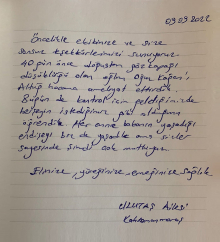 09.09.2022
Öncelikle ekibinize ve size
sonsuz teşekkürlerimizi sunuyoruz.
40 gün önce doğuştan göz kapağı
düşüklüğü olan oğlum
hocama ameliyat ettirdik.
Bugün de kontrol için geldiğimizde
herşeyin istediğimiz gibi olduğunu
öğrendik. Her anne babanın yaşadığı
endişeyi biz de yaşadık ama sizler
sayenizde şimdi çok mutluyuz.
Elinize, yüreğinize, emeğinize sağlık.
Ailesi
Kahramanmaraş